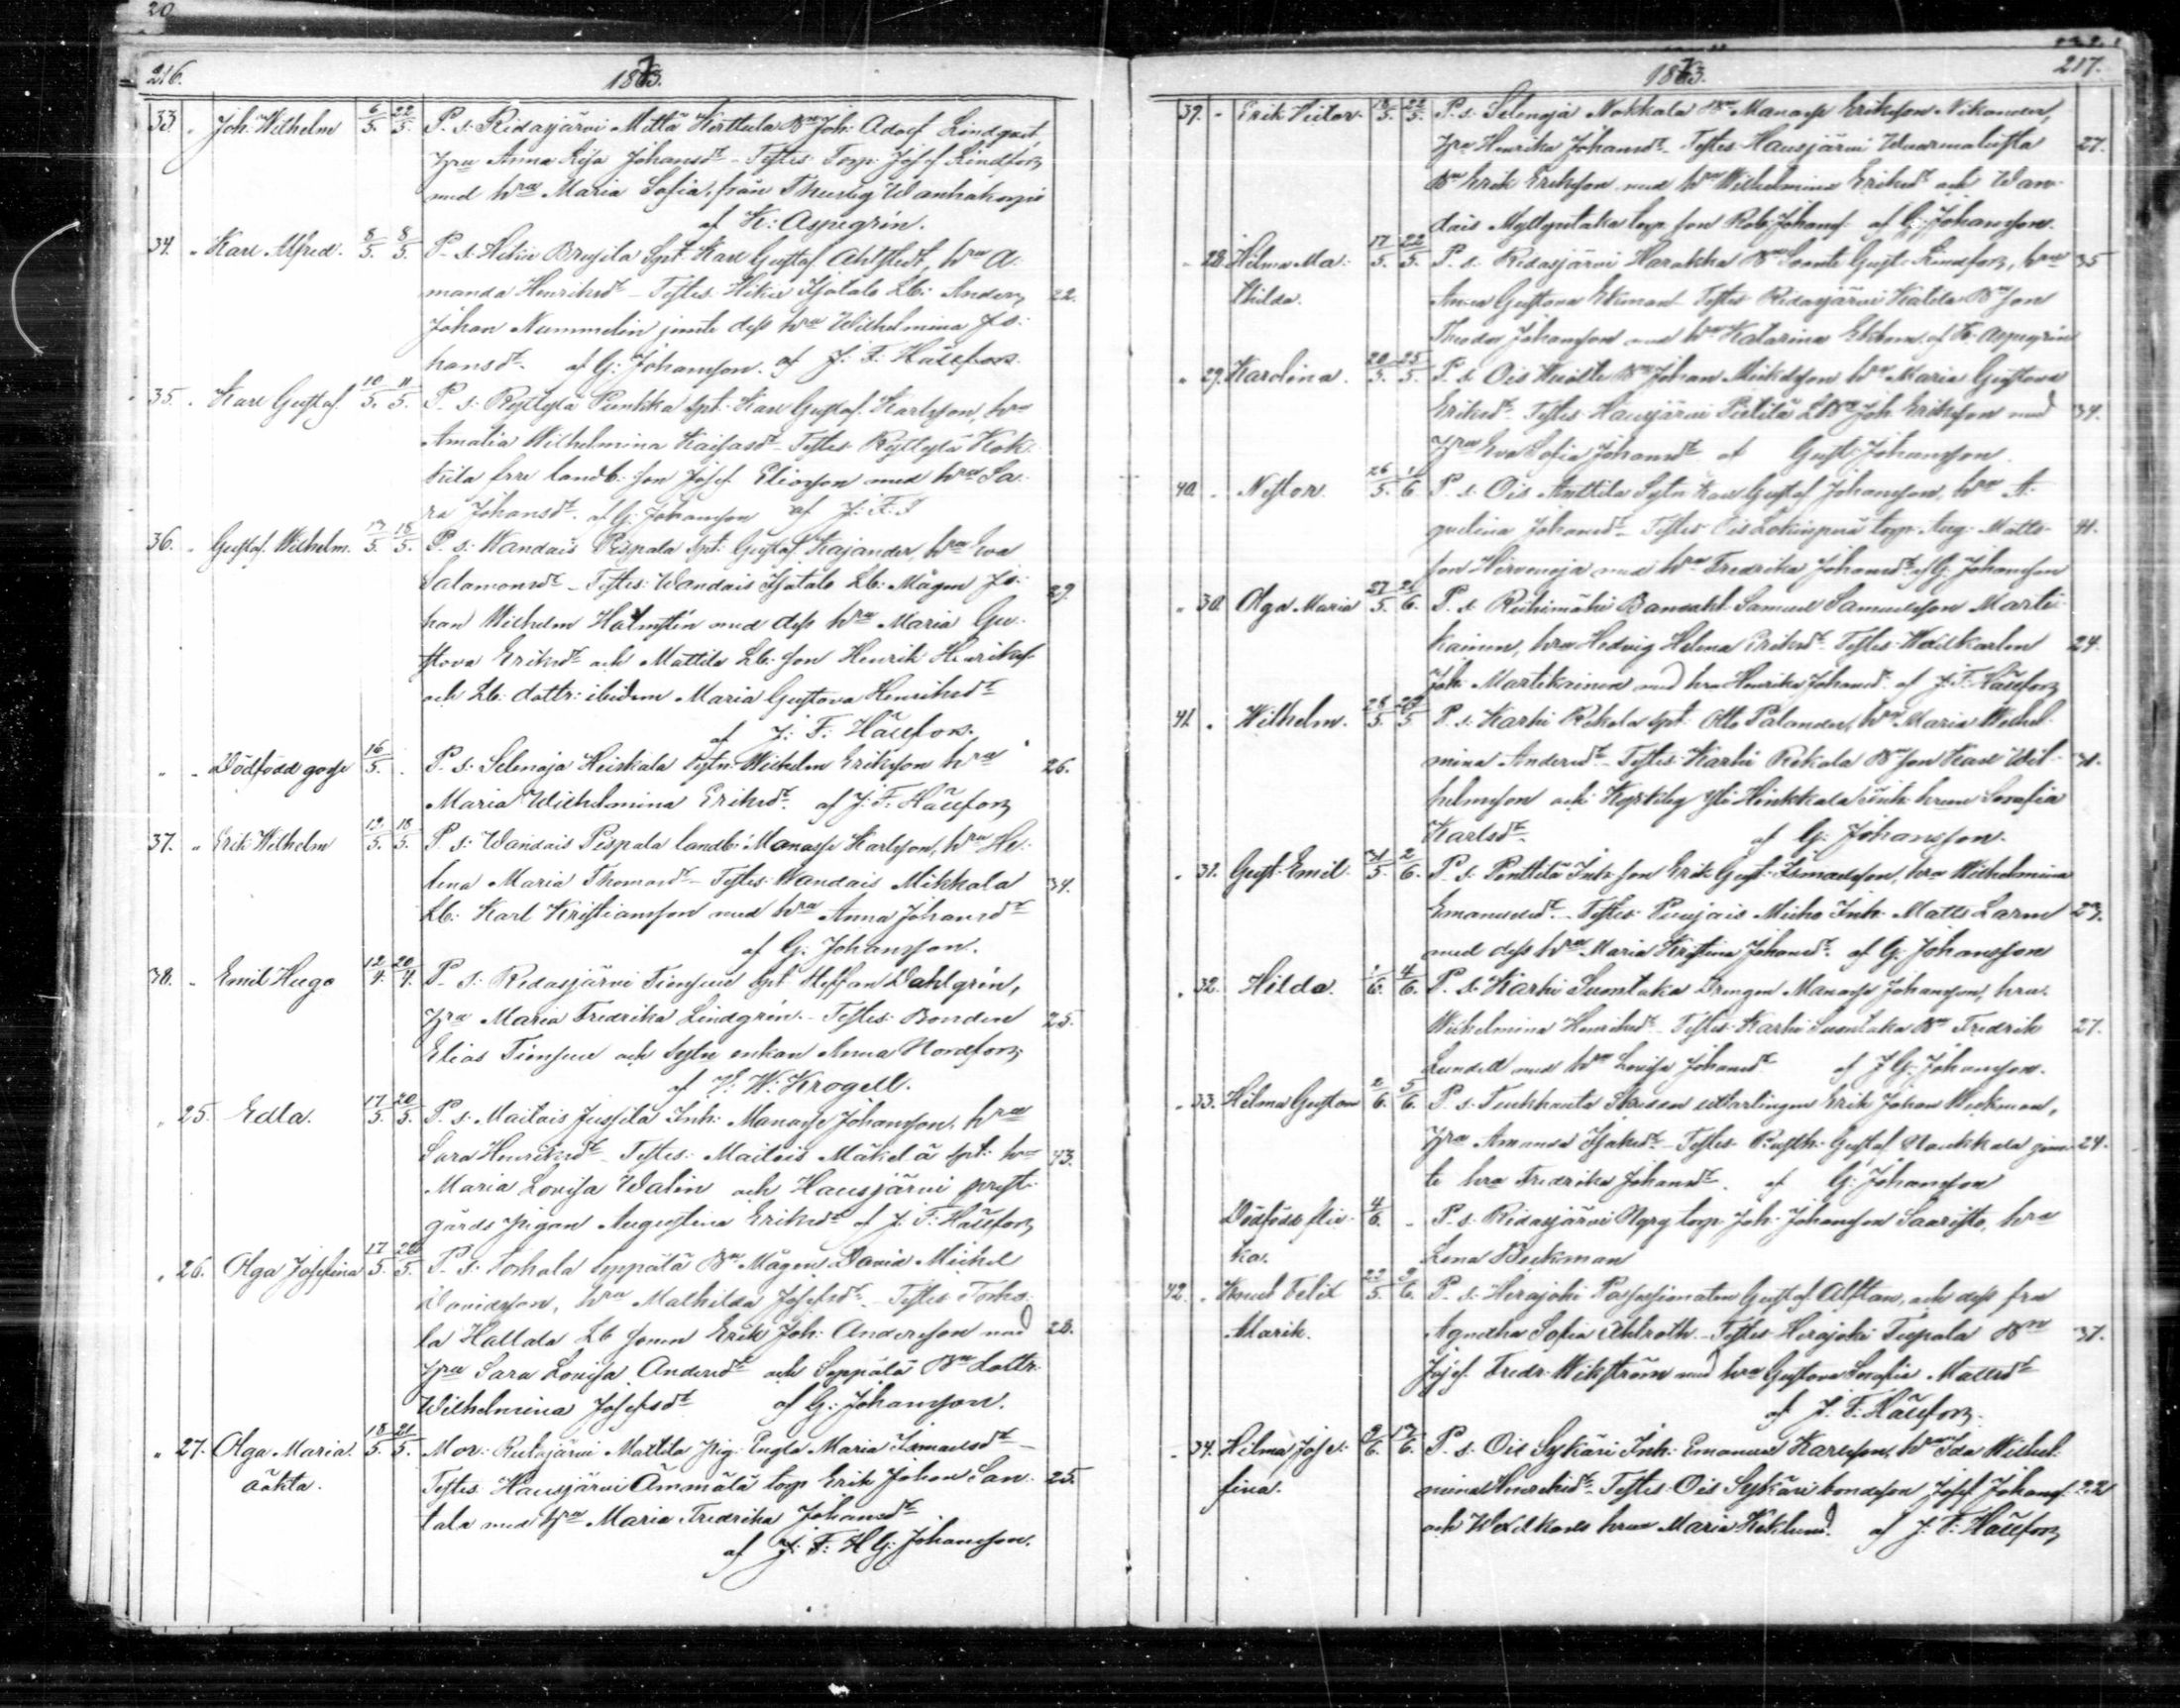 20
216.
1873.
33. " Joh. Wilhelm 6/5. 22/5. P. s. Ridasjärvi Mittä Kerttula Bn Joh: Adolf Lindqvist,
hru Anna Lisa Johansdr – Testes Torp: Josef Lindfors
med hru Maria Sofia, från Thusby Wanhakorpi
af K: Aspegrén.
34. " Karl Alfred. 8/5. 8/5. P. s. Hikiä Brusila Spt. Karl Gustaf Ahlstedt, hru A:
manda Henriksdr – Testes Hikiä Ifatalo Lb: Anders 22.
Johan Nummelin jemte dess hru Wilhelmina Jo:
hansdr. af G: Johansson. af J. F. Hällfors
35. " Karl Gustaf. 10/5. 11/5. P. s. Ryttylä Punkka Spt: Karl Gustaf Karlsson, hru
Amalia Wilhelmina Kaisasdr – Testes Ryttylä Kok:
kila förre landb: son Josef Eliasson med hru Sa:
ra Johansdr. af G: Johansson af J. F. H
36. " Gustaf Wilhelm. 13/5. 18/5. P. s. Wandais Pispala Spt: Gustaf Kajander, hru Eva
Salamonsdr – Testes: Wandais Ifatalo Lb: Mågen Jo: 29.
han Wilhelm Holmstén med dess hru Maria Gu:
stava Eriksdr och Mattila Lb: son Henrik Henriks:
och Lb: dottr: ibidem Maria Gustava Henriksdr
af J. F: Hällfors.
" " Dödfödd gosse 16/5. P. s. Selenoja Heiskala Sytn: Wilhelm Eriksson hru 26.
Maria Wilhelmina Eriksdr. af J. F. Hällfors
37. " Erik Wilhelm 13/5. 18/5. P. s. Wandais Pispala landb: Manasse Karlsson, hru He:
lena Maria Thomasdr – Testes: Wandais Mikkola 34.
Lb: Karl Kristiansson med hru Anna Johansdr
af G. Johansson.
38. " Emil Hugo 12/4. 20/4. P. s. Ridasjärvi Tiensuu Spt Steffan Dahlgrén,
hru Maria Fredrika Lindgrén. – Testes: Bonden 25.
Elias Tiensuu och Sytn enkan Anna Nordfors
af H. W: Krogell.
" 25. Edla. 17/5. 20/5. P. s. Maitois Jussila Inh: Manasse Johansson, hru
Sara Henriksdr – Testes: Maitois Mäkelä Spt: hru 43.
Maria Lovisa Walin och Hausjärvi prest-
gårds pigan Augustina Eriksdr af J. F: Hällfors
" 26. Olga Josefina 17/5. 20/5. P. s. Torhola Seppälä Bn Mågen David Michel
Davidsson, hru Mathilda Josefsdr. – Testes Torho:
la Hallala Lb sonen Erik Joh: Andersson med 28.
hru Sara Lovisa Andersdr och Seppälä Bn Dottr:
Wilhelmina Josefsdr af G: Johansson.
" 27. Olga Maria 18/5. 21/5. Mor: Mattila Pig: Engla Maria Ismaelsdr
oäkta. Testes Hausjärvi Ämmälä torp: Erik Johan San: 25.
tala med hru Maria Fredrika Johansdr
af J: F: H G: Johansson.
1873.
217.
39. " Erik Victor 13/5. 22/5. P. s. Selenoja Nokkala Bn Manasse Eriksson Nikander,
hru Henrika Johansdr – Testes Hausjärvi 27.
Bn Erik Eriksson med hru Wilhelmina Eriksdr och Wan:
dais Myllyntaka torp son Rob: Johans. af G: Johansson.
" 28. Hilma Ma: 17/5. 22/5. P. s. Ridasjärvi Harakka Bn Gust: Lindfors, hru 35
thilda. Anna Gustava Ekman – Testes Ridasjärvi Katila Bn son
Theodor Johansson med hru Katarina Ekbom. af K: Aspegrén
" 29. Karolina. 20/5. 25/5. P. s. Ois Bn Johan Mickelsson hru Maria Gustava
Eriksdr – Testes Hausjärvi Pietilä Bn Joh: Eriksson med 34.
hru Eva Sofia Johansdr af Gust: Johansson.
40. " Nestor. 26/5. 1/6. P. s. Ois Anttila Sytn Karl Gustaf Johansson, hru A:
gnelina Johansdr – Testes Ois torp: Aug: Matts- 41.
son Hervenoja med hru Fredrika Johansdr af G: Johansson
" 30. Olga Maria 27/5. 2/6. P. s. Riihimäki Banvakt Samuel Samuelsson Marti:
kainen, hru Hedvig Helena Eriksdr Testes Wexelkarlen 24.
Joh: Martikainen med hru Henrika Johansdr. af J. F. Hällfors
41. " Wilhelm. 28/5. 29/5. P. s. Karhi Rekola Spt: Otto Palander, hru Maria Wilhel:
mina Andersdr – Testes Karhi Rekola Bn son Karl Wil-
helmsson och Kyrkby Yli Hinkkala Inh: hrun Serafia
Karlsdr. af G: Johansson.
" 31. Gust: Emil. 31/5. 2/6. P. s. Penttilä Inh: son Erik Gust: Ismaelsson, hru Wilhelmina
Emanuelsdr – Testes: Puujais Inh: Matts Larm 27.
med dess hru Maria Kristina Johansdr. af G: Johansson
" 32. Hilda. 1/6. 4/6. P. s. Karhi Suontaka Drengen Manasse Johansson, hru
Wilhelmina Henriksdr – Testes Karhi Suontaka Bn Fredrik 27.
Lundell med hru Lovisa Johansdr af J G. Johansson.
" 33. Hilma Gustava 2/6. 5/6. P. s. Erik Johan Wickman,
hru Amanda Isaksdr – Testes Rusth: Gustaf Naukkala jem: 24.
te hru Fredrika Johansdr. af G: Johansson
Dödfödd flic- 4/6. " P. s. Ridasjärvi Nyrg torp: Joh: Johansson Saaristo, hru
ka. Lena Beckman
42. " Knut Felix 22/5. 9/6. P. s. Herajoki Possessionaten Gustaf Alftan, och dess fru
Marik. Agnetha Sofia Ahlroth – Testes Herajoki Bn 37.
Josef Fredr: Wikström med hru Gustava Serafia Mattsdr
af J. F. Hällfors.
" 34. Hilma Jose: 9/6. 13/6. P. s. Ois Sykäri Inh: Emanuel Karlsson, hru Ida Wilhel:
fina. mina Henriksdr – Testes Ois Sykäri bondeson Josef Johans. 22
och Wexelkarls hrun Maria Heklund. af J. F. Hällfors